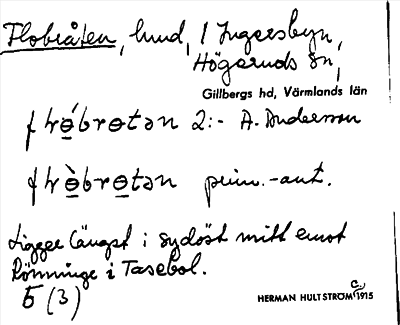 Flobråten, hmd, / Ingersbyn,
Högeruds sn,
Gillbergs hd, Värmlands län
2:- A. Anderson
prim.-ant.
Ligger längst i sydöst mitt emot
Rönninge i Tasebol.
5 (3)
HERMAN HULTSTRÖM C. 1915